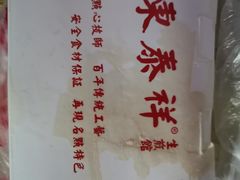 東泰祥®
生煎館
點心技師 百年傳統工藝
安全食材保証 再現名點特色